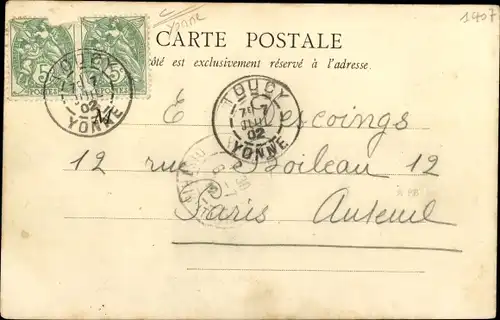 1407
Yonne
CARTE POSTALE
côté est exclusivement réservé à l'adresse.
5 5
POSTES POSTES
TOUCY
7
02
YONNE
TOUCY
7
02
YONNE
E Descoings
12 rue Boileau 12
Paris Auteuil